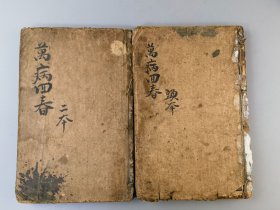 萬病四春
本
萬病四春
二本